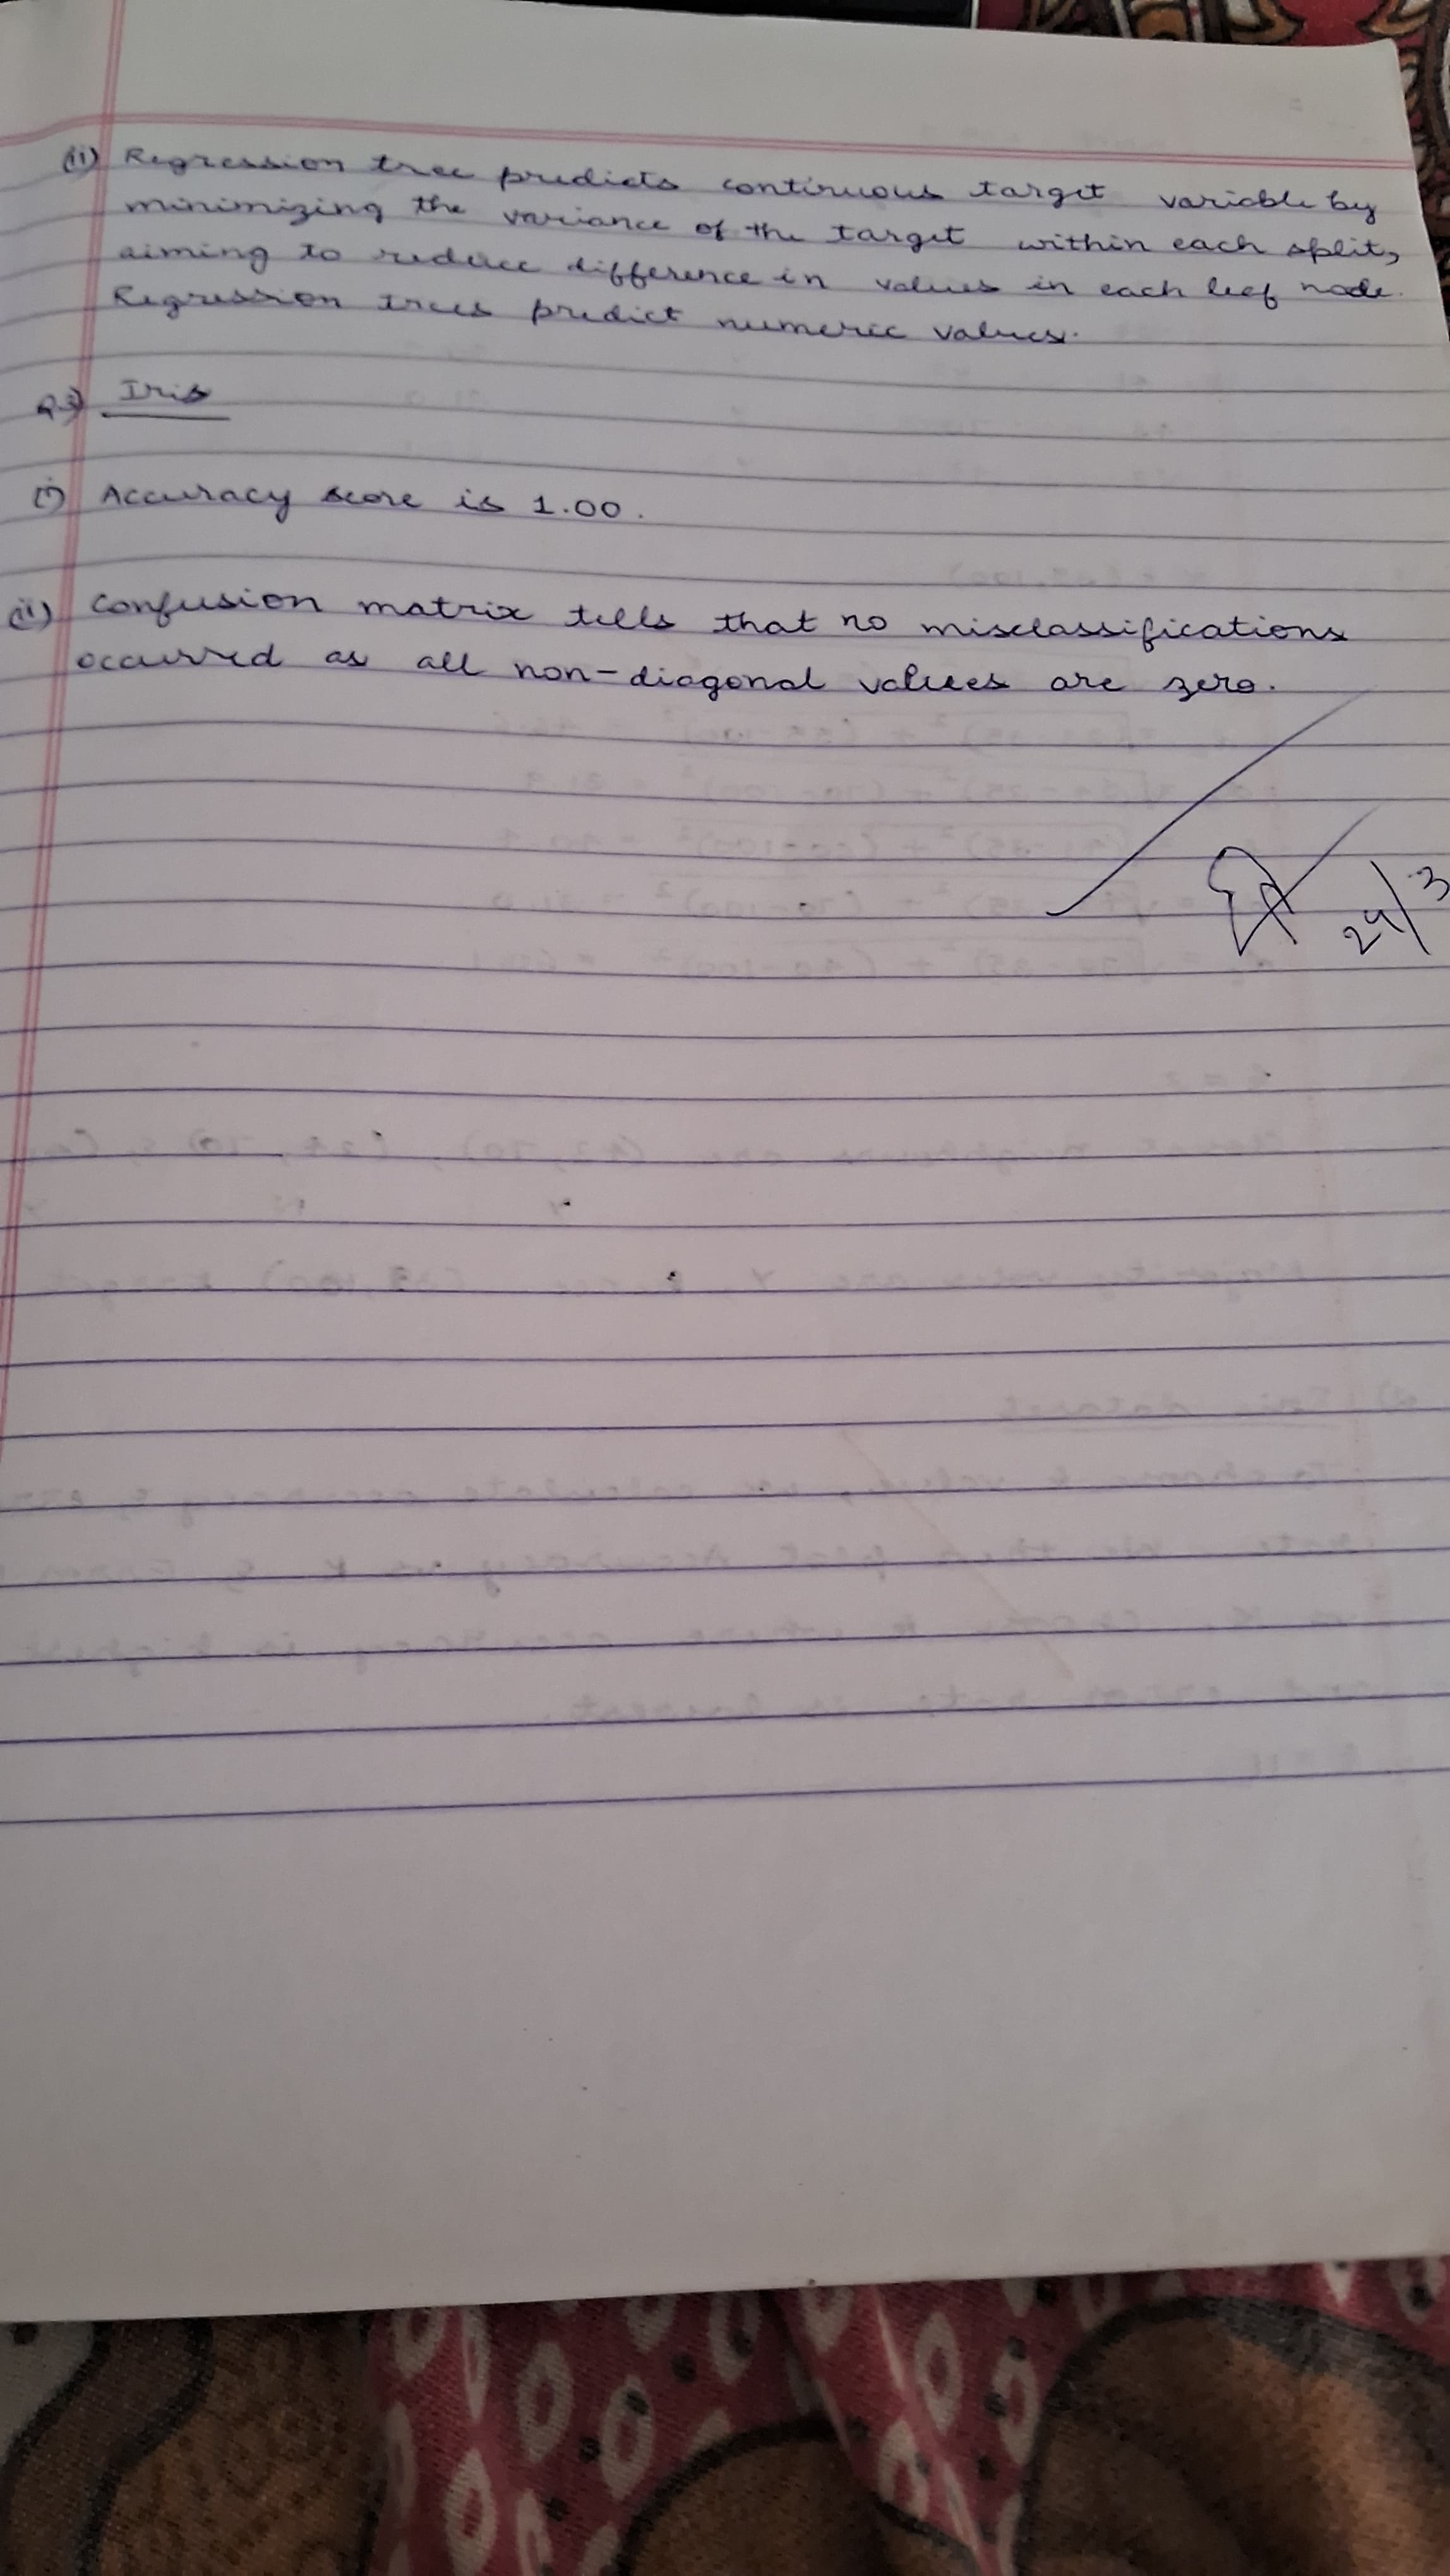 (ii) Regression tree predicts continuous target variable by
minimizing the variance of the target within each split,
aiming to reduce difference in values in each leef node.
Regression trees predict numeric values.
Q3) Iris
(i) Accuracy score is 1.00.
(ii) Confusion matrix tells that no misclassifications
occurred as all non-diagonal values are zero.
24/3